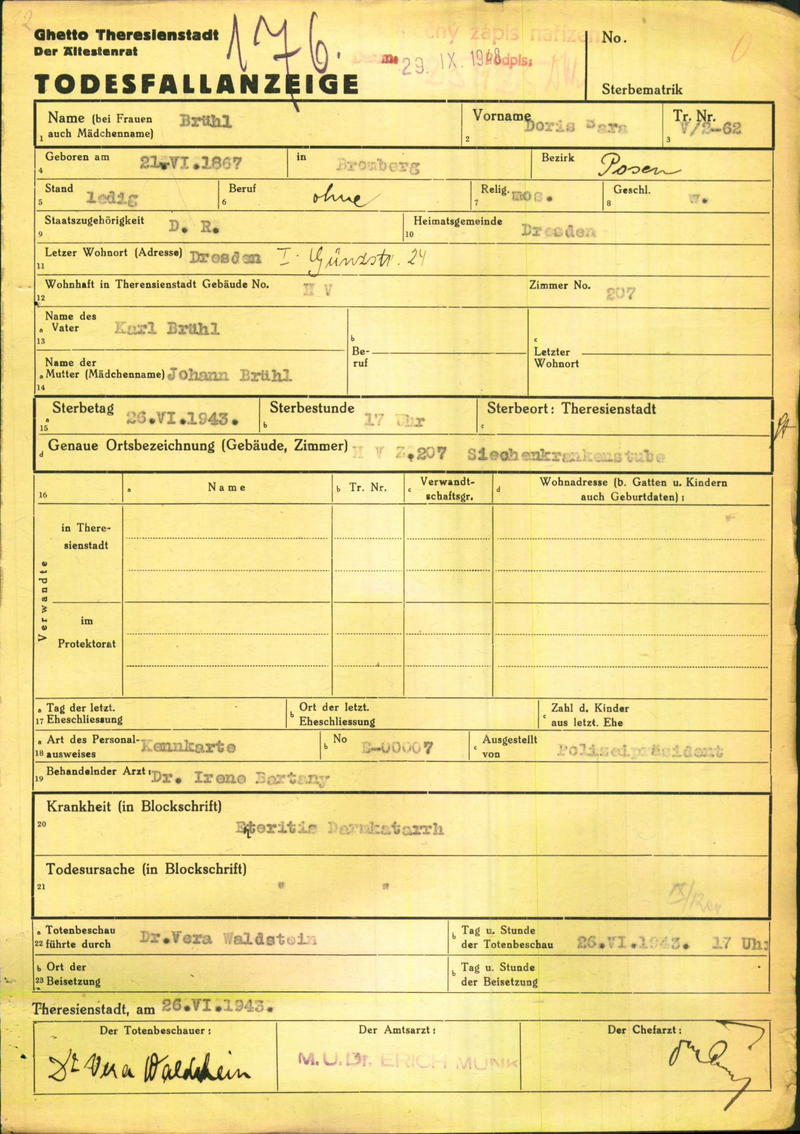 Ghetto Theresienstadt
Der Ältestenrat
176.
29. IX. 1948
TODESFALLANZEIGE
No.
Sterbematrik
Name (bei Frauen auch Mädchenname) Brühl
1
Vorname Doris Sara
2
Tr. Nr. V/2-62
3
Geboren am 21.VI.1867
4
in Bromberg
Bezirk Posen
Stand ledig
5
Beruf ohne
6
Relig. mos.
7
Geschl. w.
8
Staatszugehörigkeit D. R.
9
Heimatsgemeinde Dresden
10
Letzer Wohnort (Adresse) Dresden I. 24
11
Wohnhaft in Therensienstadt Gebäude No. H V
12
Zimmer No. 207
Name des
a Vater Karl Brühl
13
b
Be-
ruf
c
Letzter
Wohnort
Name der
a Mutter (Mädchenname) Johann Brühl
14
a Sterbetag 26.VI.1943.
15
b Sterbestunde 17 Uhr
c Sterbeort: Theresienstadt
d Genaue Ortsbezeichnung (Gebäude, Zimmer) H V Z.207 Siechenkrankenstube
16
a Name
b Tr. Nr.
c Verwandt-
schaftsgr.
d Wohnadresse (b. Gatten u. Kindern
auch Geburtdaten):
Verwandte
in There-
sienstadt
im
Protektorat
a Tag der letzt.
17 Eheschliessung
b Ort der letzt.
Eheschliessung
c Zahl d. Kinder
aus letzt. Ehe
a Art des Personal-
18 ausweises Kennkarte
b No E-00007
c Ausgestellt
von Polizeipräsident
19 Behandelnder Arzt: Dr. Irene Bartany
Krankheit (in Blockschrift)
20
Eteritis Darmkatarrh
Todesursache (in Blockschrift)
21
" "
a Totenbeschau
22 führte durch Dr.Vera Waldstein
b Tag u. Stunde
der Totenbeschau 26.VI.1943. 17 Uh:
b Ort der
23 Beisetzung
b Tag u. Stunde
der Beisetzung
Theresienstadt, am 26.VI.1943.
Der Totenbeschauer:
Dr Vera Waldstein
Der Amtsarzt:
M.U.Dr. ERICH MUNK
Der Chefarzt: